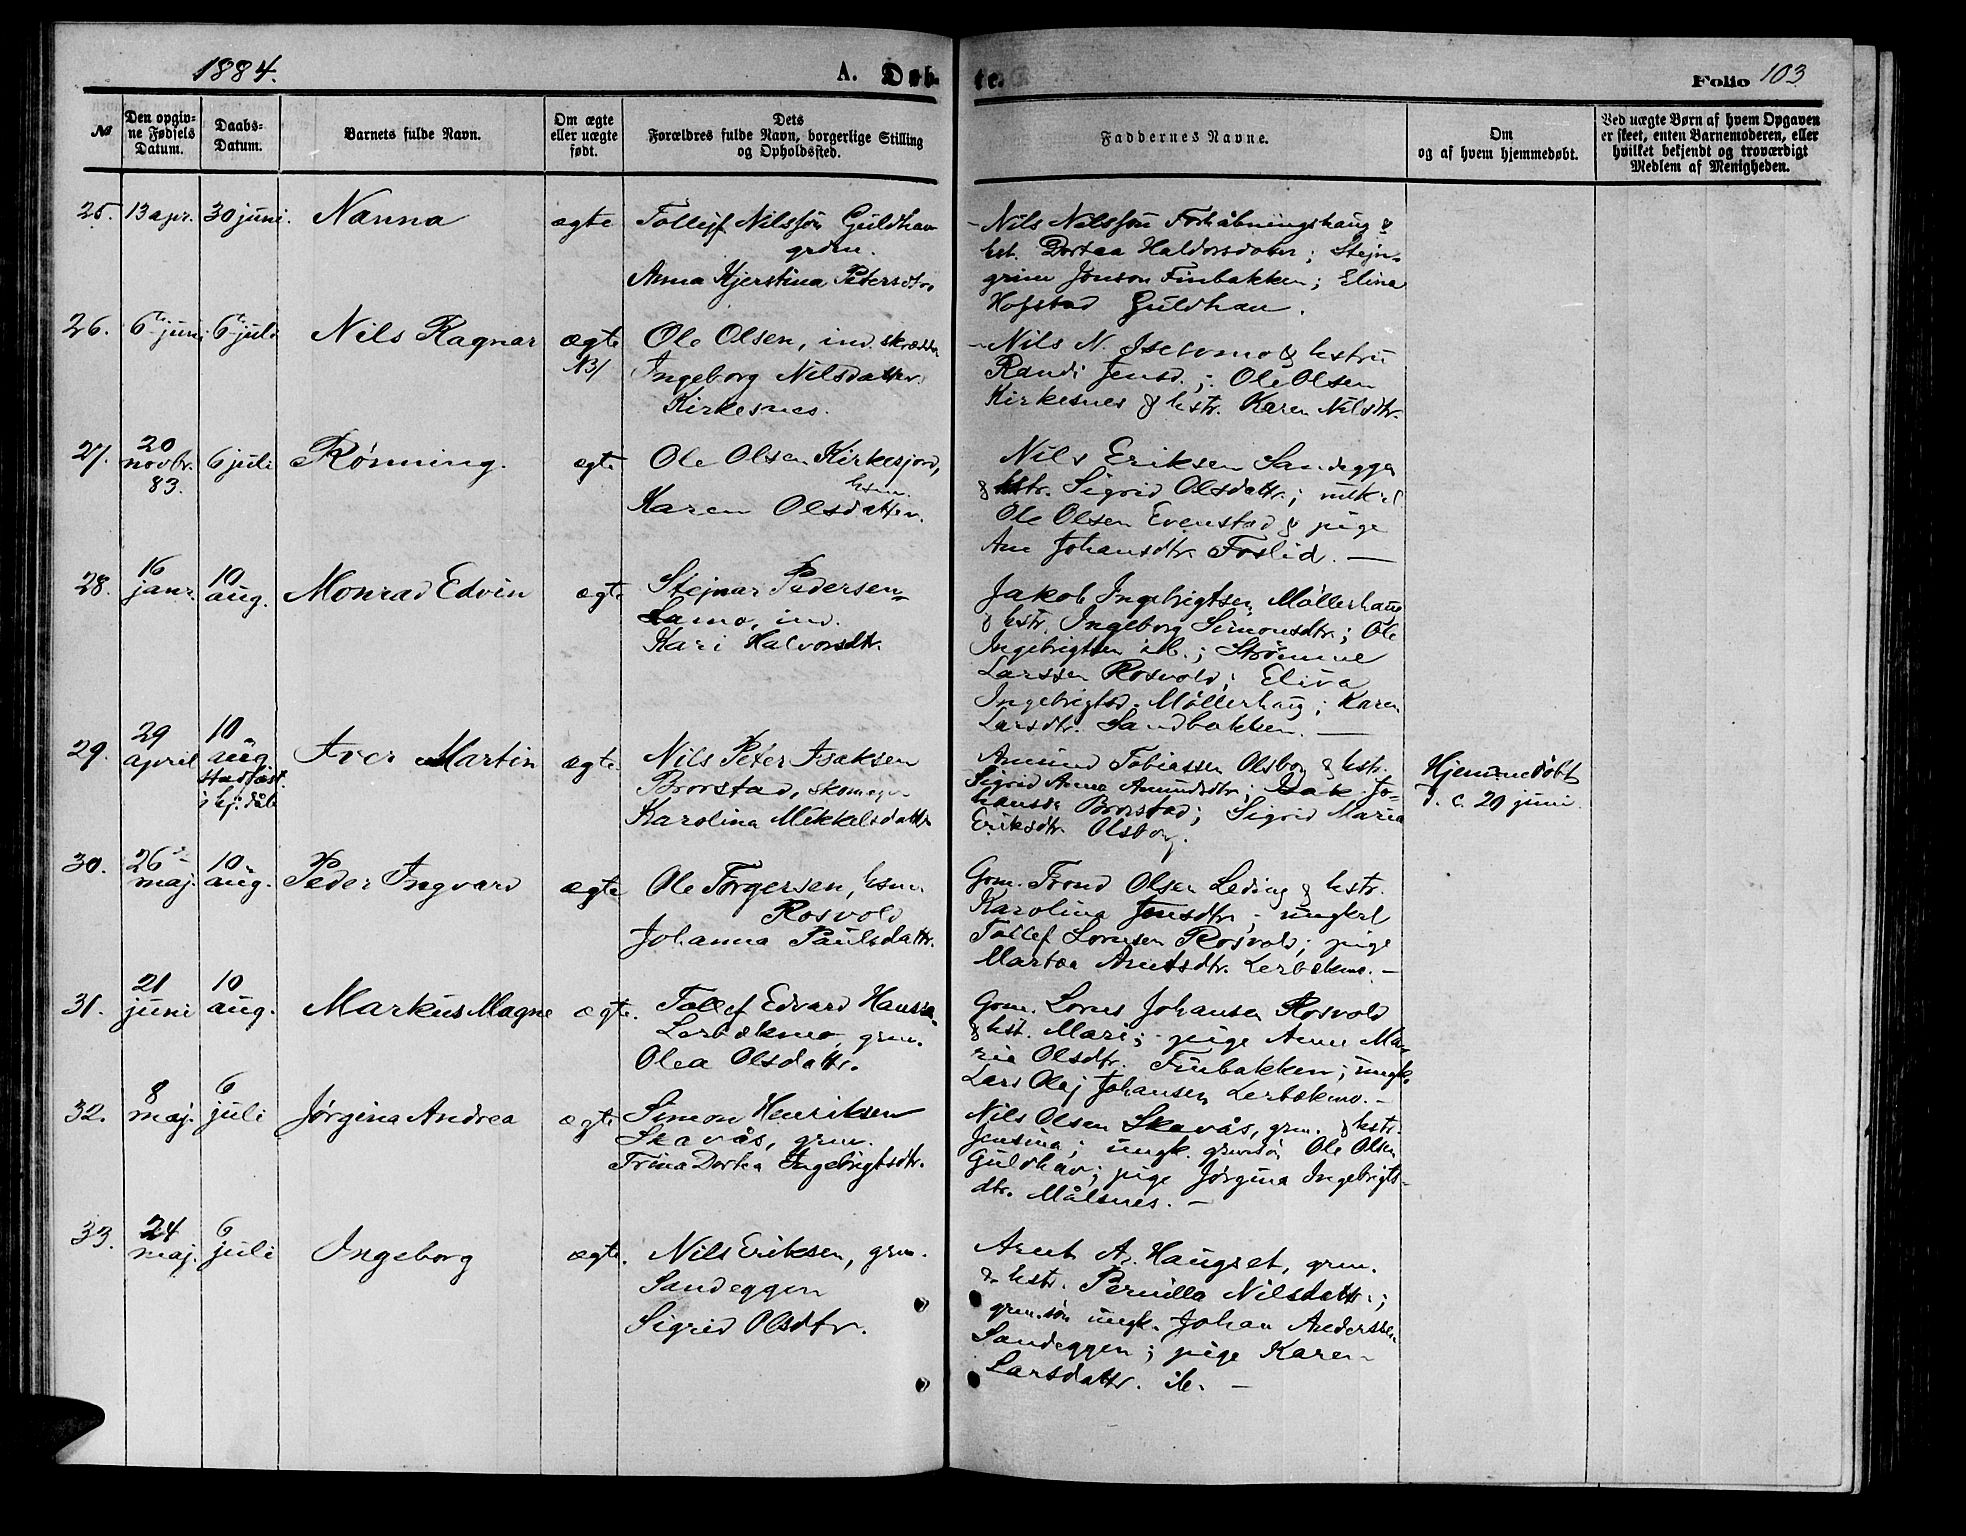 1884.
A. Døb-
te.
Folio 103
№
Den opgiv-
ne Fødsels
Datum.
Daabs-
Datum.
Barnets fulde Navn.
Om ægte
eller uægte
født.
Dets
Forældres fulde Navn, borgerlige Stilling
og Opholdssted.
Faddernes Navne.
Om
og af hvem hjemmedøbt.
Ved uægte Børn af hvem Opgaven
er skeet, enten Barnemoderen, eller
hvilket bekjendt og troværdigt
Medlem af Menigheden.
25. 13 apr. 30 juni. Nanna ægte
Tollef Nilssøn Guldhav
grdm.
Anna Kjerstina Pedersdtr.
Nils Nilssøn Forhåbningshaug &
hst. Dortea Haldorsdatter; Stejn-
grim Jonson Finbakken; Elina
Hofstad Guldhav.
26. 6 juni 6 juli Nils Ragnar ægte
NB/
Ole Olsen, ind. skrædder
Ingeborg Nilsdatter
Kirkesnes.
Nils N. Iselvmo & hstru
Randi Jensd.; Ole Olsen
Kirkesnes & hstr. Karen Nilsdtr.
27. 20
novbr.
83.
6 juli Rønning. ægte
Ole Olsen Kirkesjord,
hsm.
Karen Olsdatter.
Nils Eriksen Sandeggen
& hstr. Sigrid Olsdattr.;
Ole Olsen Evenstad & pige
Ane Johansdtr. Foslid. —
28. 16
janr.
10
aug.
Monrad Edvin ægte
Stejnar Pedersen
Lamo, ind.
Kari Halvorsdtr.
Jakob Ingebrigtsen Møllerhaug
& hstr. Ingeborg Simonsdtr.; Ole
Ingebrigtsen ib.; Strømme
Larssen Rosvold; Elina
Ingebrigtsd. Møllerhaug; Karen
Larsdtr. Sandbakken. —
29. 29
april
10
aug.
stadfæst.
hj. dåb
Iver Martin ægte
Nils Peter Isaksen
Brorstad, skomager
Karolina Mikkelsdattr
Amund Tobiassen Olsborg & hstr.
Sigrid Anna Amundsdtr; Isak Jo-
hanssen Brorstad; Sigrid Maria
Eriksdtr. Olsborg.
Hjemmedøbt
d. 20 juni.
30. 26
maj.
10
aug.
Peder Ingvard ægte
Ole Torgersen, hsm.
Rosvold
Johanna Paulsdattr.
Grm. Trond Olsen Leding & hstr.
Karolina Jensdtr; ungkrl
Tollef Lornsen Rosvold; pige
Martea Arntsdtr. Lerbekmo. —
31. 21
juni
10
aug.
Markus Magne ægte.
Tollef Edvard Hanssen
Lerbekmo, grm.
Olea Olsdattr.
Grm. Lorns Johansen Rosvold
& hst. Mari; pige Anne Ma-
rie Olsdtr. Finbakken; ungk.
Lars Olaj Johansen Lerbekmo. —
32. 8
maj.
6
juli
Jørgina Andrea ægte
Simon Henriksen
Skavås, grm.
Trina Dortea Ingebrigtsdtr.
Nils Olsen Skavås, grm. & hstr.
Jensina; ungk. grmsøn Ole Olsen
Guldhav; pige Jørgina Ingebrigts-
dtr. Målsnes. —
33. 24
maj.
6
juli
Ingeborg ægte.
Nils Eriksen, grm.
Sandeggen
Sigrid Olsdtr.
Arnt A. Haugset, grm.
& hstr. Pernilla Nilsdattr.;
grm.søn ungk. Johan Anderssen
Sandeggen; pige Karen
Larsdattr. ib. —